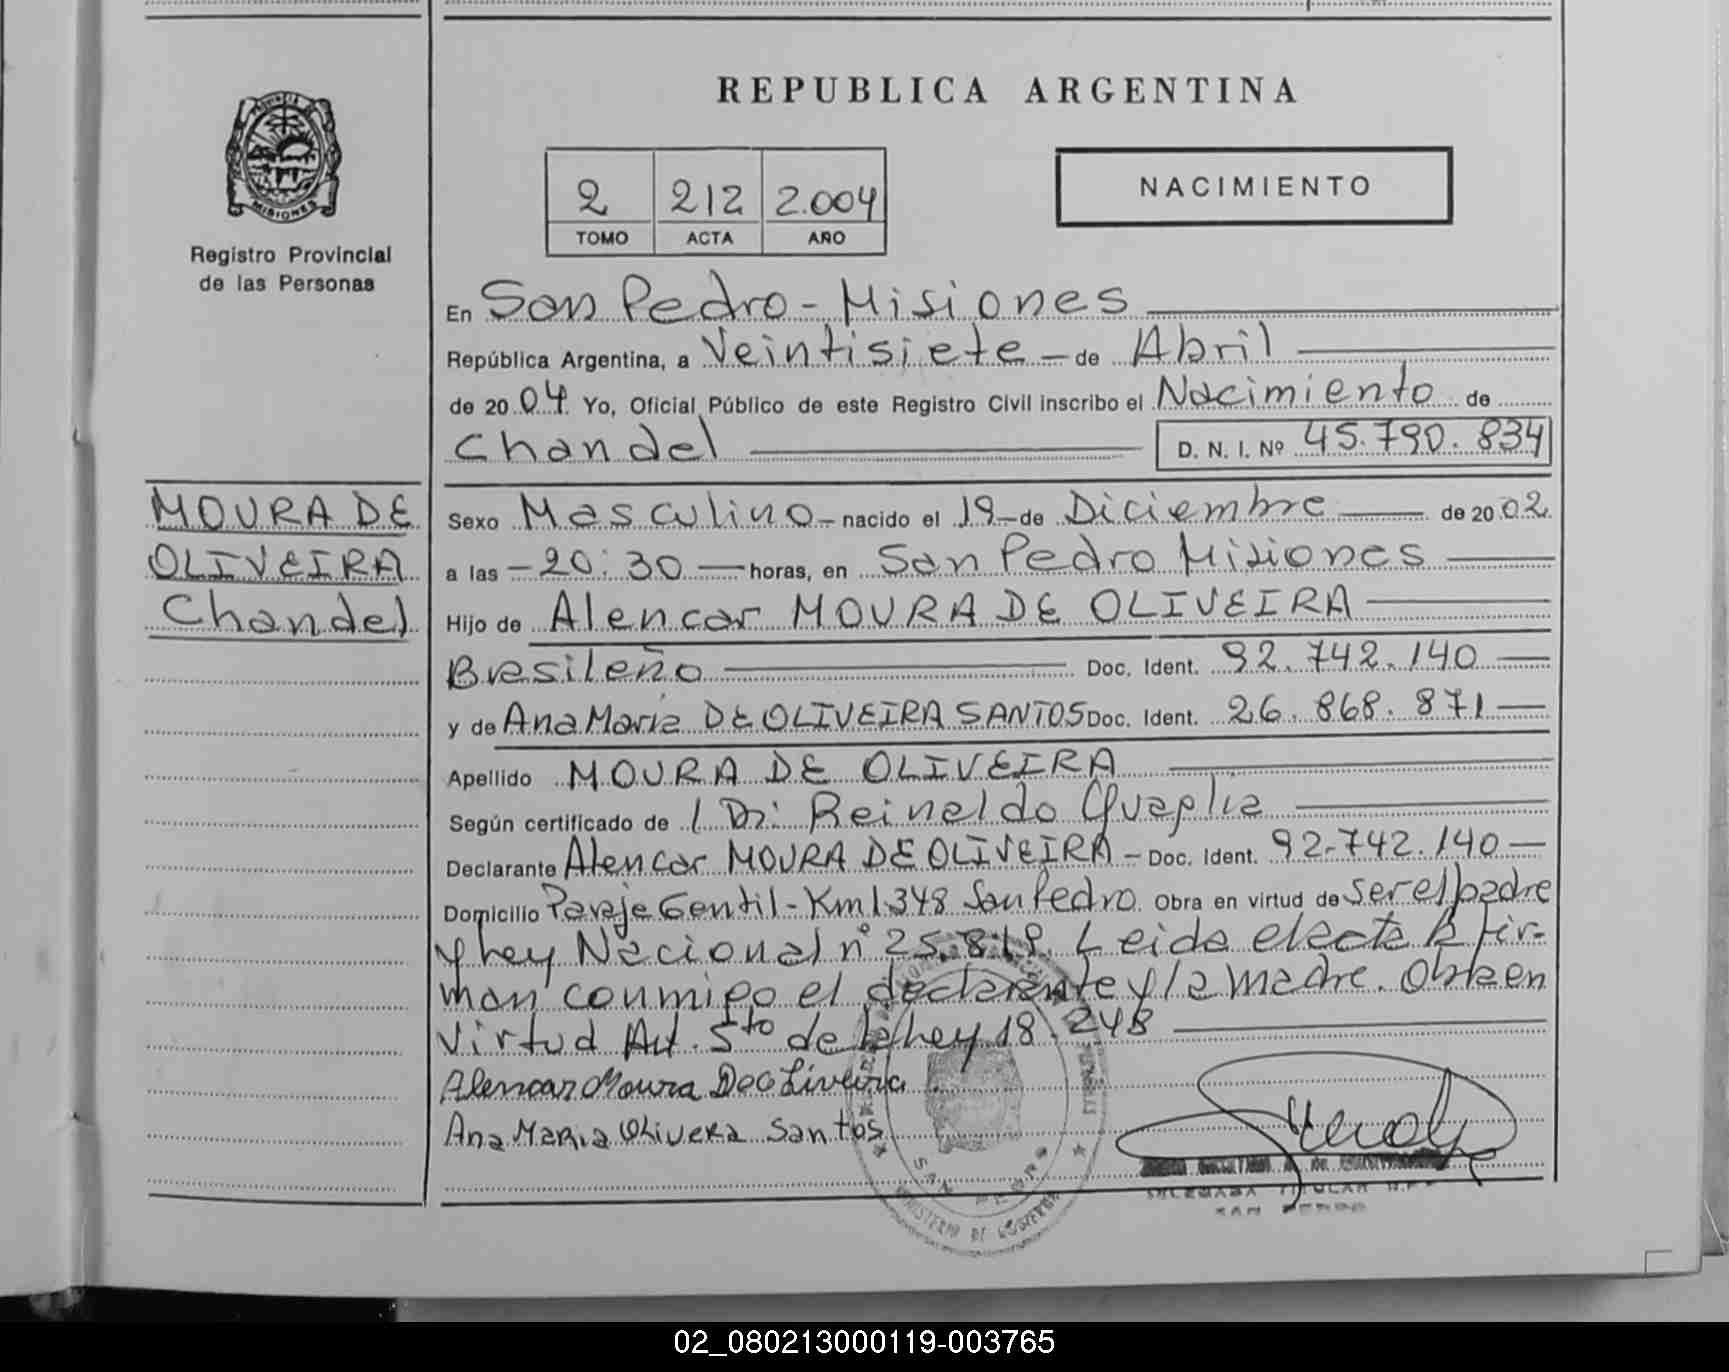 REPUBLICA ARGENTINA
PROVINCIA DE
MISIONES
Registro Provincial
de las Personas
2 212 2.004
TOMO ACTA AÑO
NACIMIENTO
En San Pedro - Misiones
República Argentina, a Veintisiete - de Abril
de 20 04. Yo, Oficial Público de este Registro Civil inscribo el Nacimiento de
Chandel D. N. I. Nº 45.790.834
MOURA DE
OLIVEIRA
Chandel
Sexo Masculino - nacido el 19 - de Diciembre de 20 02.
a las - 20:30 - horas, en San Pedro Misiones
Hijo de Alencar MOURA DE OLIVEIRA
Brasileño Doc. Ident. 92.742.140
y de Ana Maria DE OLIVEIRA SANTOS Doc. Ident. 26.868.871
Apellido MOURA DE OLIVEIRA
Según certificado de / Dr: Reinaldo
Declarante Alencar MOURA DE OLIVEIRA - Doc. Ident. 92.742.140
Domicilio Paraje Gentil - Km 1348 San Pedro. Obra en virtud de ser el padre
y ley Nacional nº 25.819. Leida el acta la fir-
man conmigo el declarante y la madre. Obra en
virtud Art. 5to de la ley 18.248
Alencar Moura De oLiveira
Ana Maria Olivera Santos
SAN PEDRO
MINISTERIO DE GOBIERNO
TITULAR
SAN PEDRO
02_080213000119-003765